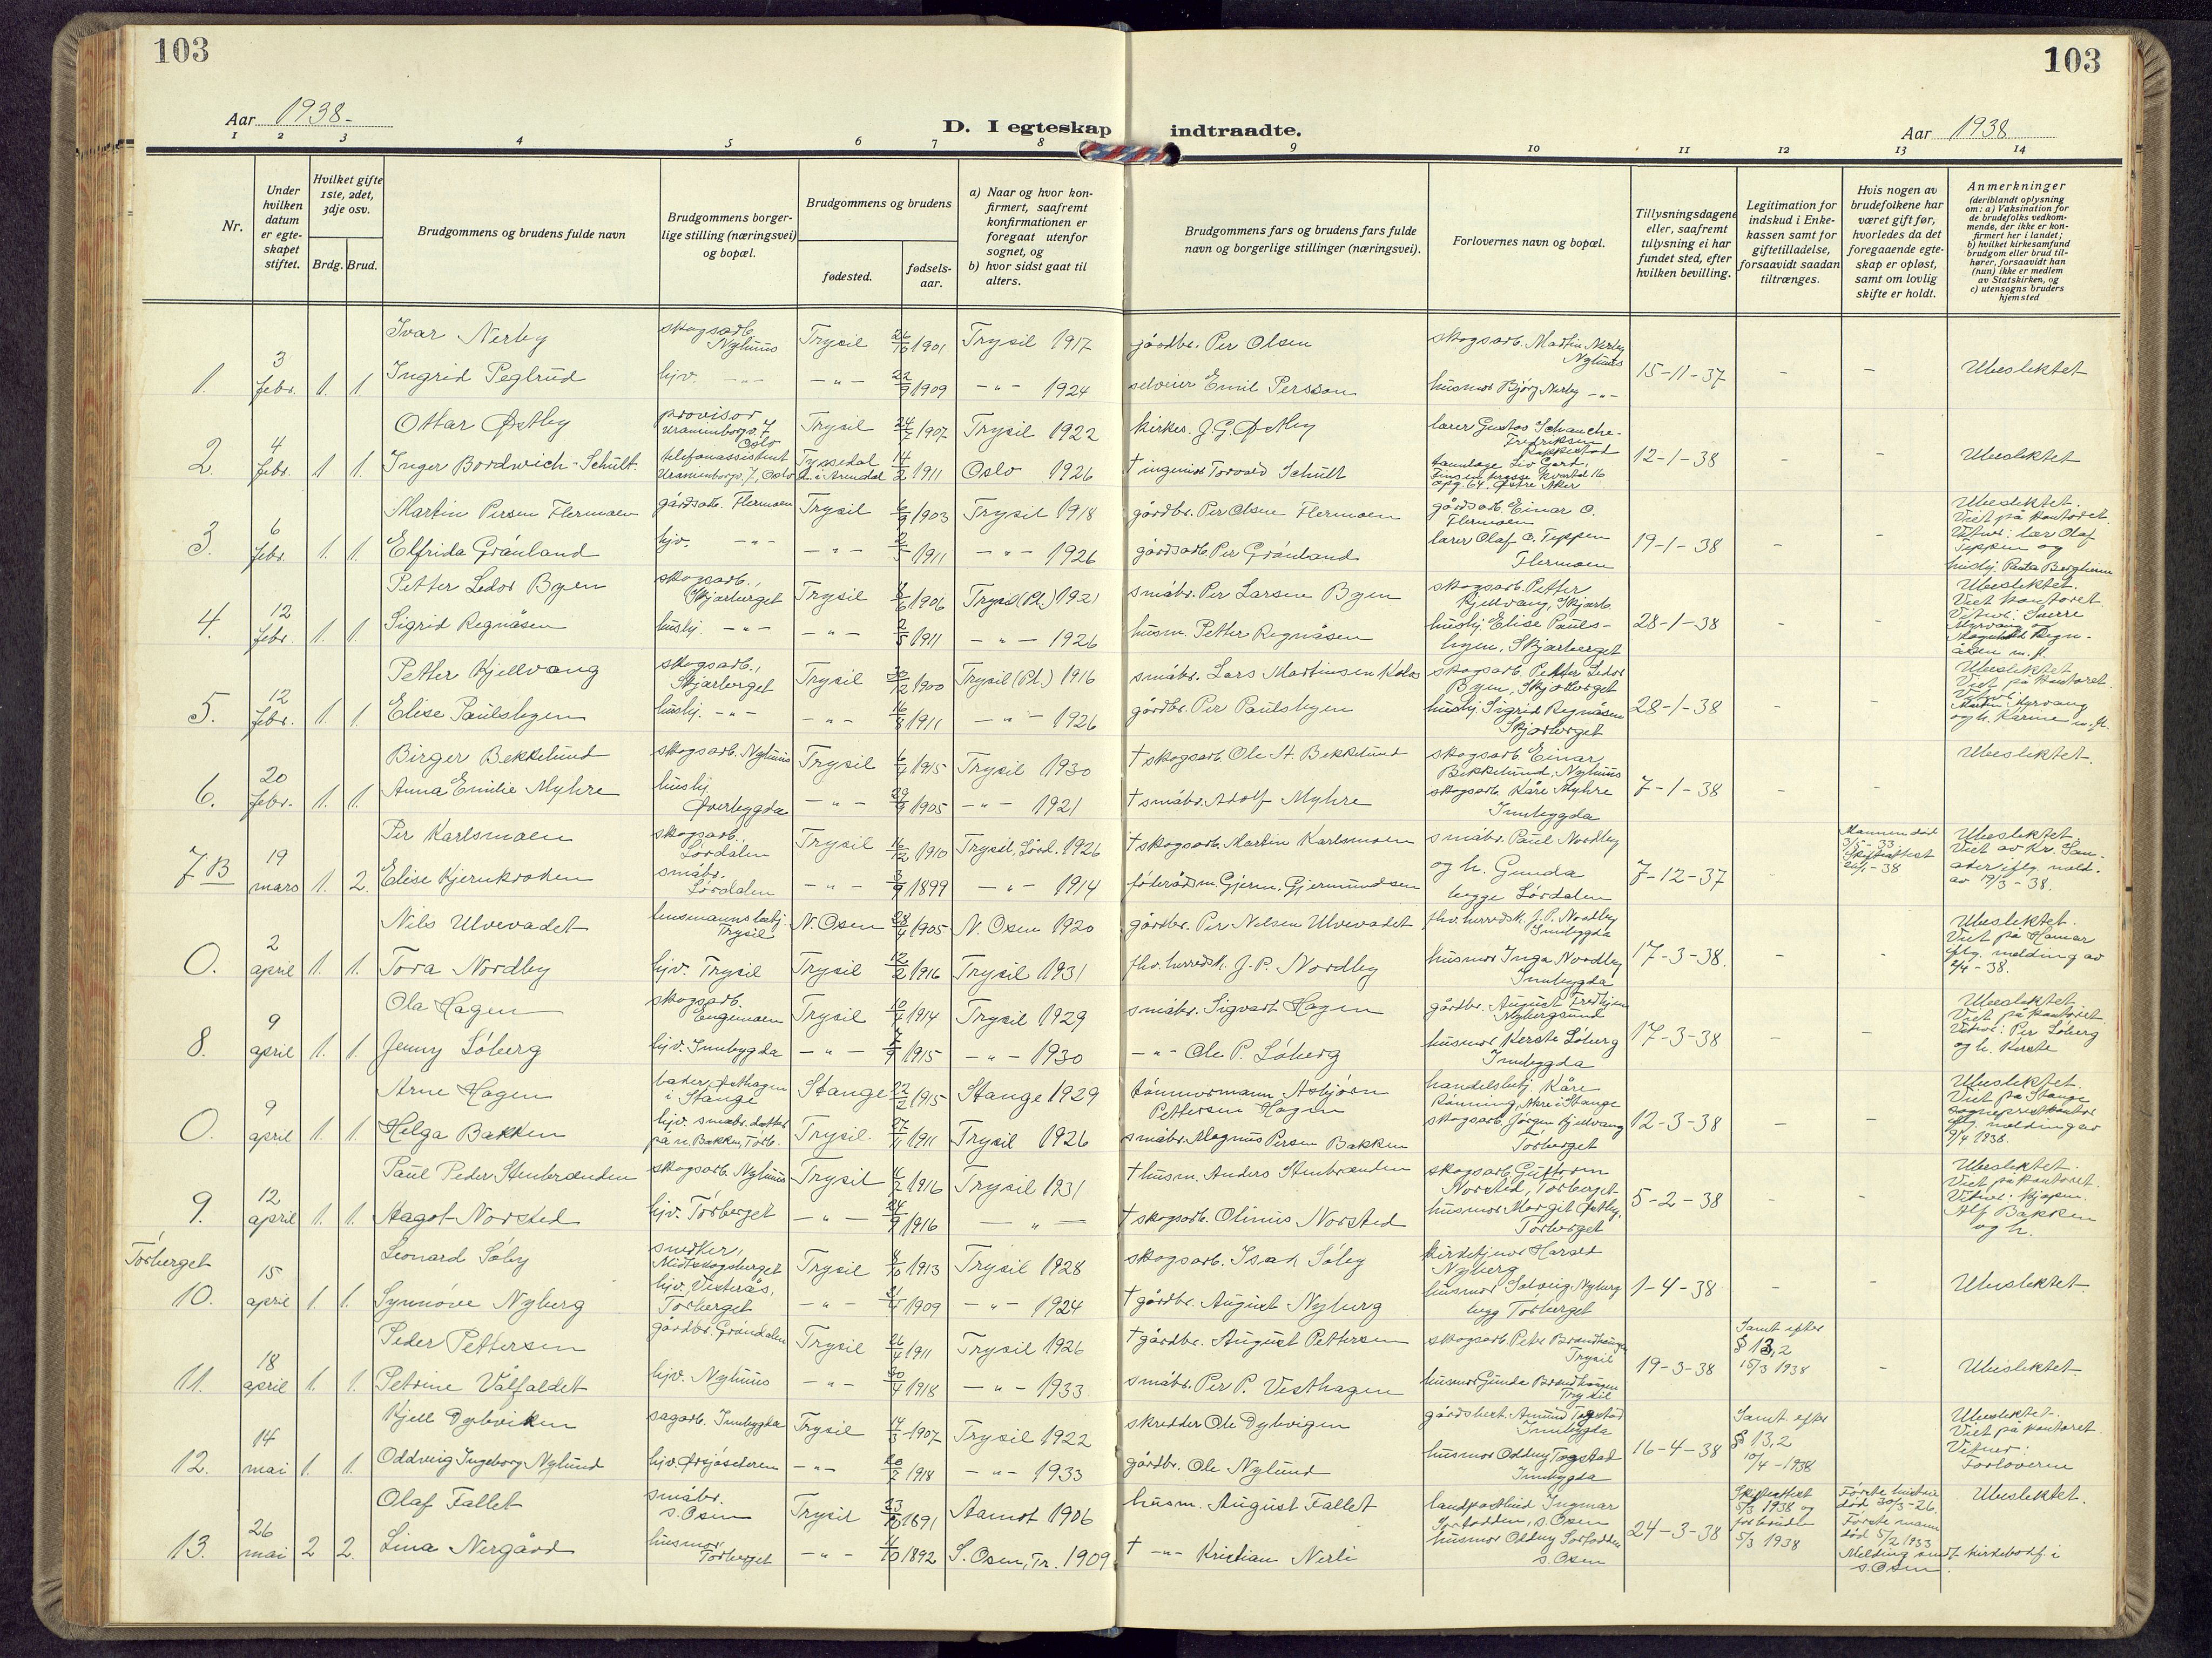 103
103
Aar 1938-
D. I egteskap indtraadte.
Aar 1938
1 2 3 4 5 6 7 8 9 10 11 12 13 14
Nr.
Under hvilken datum er egteskapet stiftet.
Hvilket gifte 1ste, 2det, 3dje osv.
Brdg. Brud.
Brudgommens og brudens fulde navn
Brudgommens borgerlige stilling (næringsvei) og bopæl.
Brudgommens og brudens
fødested.
fødselsaar.
a) Naar og hvor konfirmert, saafremt konfirmationen er foregaat utenfor sognet, og
b) hvor sidst gaat til alters.
Brudgommens fars og brudens fars fulde navn og borgerlige stillinger (næringsvei).
Forlovernes navn og bopæl.
Tillysningsdagene eller, saafremt tilysning ei har fundet sted, efter hvilken bevilling.
Legitimation for indskud i Enkekassen samt for giftetilladelse, forsaavidt saadan tiltrænges.
Hvis nogen av brudefolkene har været gift før, hvorledes da det foregaaende egteskap er opløst, samt om lovlig skifte er holdt.
Anmerkninger (deriblandt oplysning om: a) Vaksination for de brudefolks vedkommende, der ikke er konfirmert her i landet; b) hvilket kirkesamfund brudgom eller brud tilhører, forsaavidt han (hun) ikke er medlem av Statskirken, og c) utensogns bruders hjemsted
Ivar Nerby skogsarb. Nyhuus Trysil 26/10 1901 Trysil 1917 gårdbr. Per Olsen skogsarb. Martin Nerby Nyhuus
1. 3 febr. 1. 1. Ingrid Peglrud hjv. -"- -"- 22/9 1909 -"- 1924 selveier Emil Persson husmor Bjørg Nerby -"- 15-11-37 - - Ubeslektet
Ottar Østby provisor Uranienborgv. 7 Oslo Trysil 24/7 1907 Trysil 1922 kirkes. J.G. Østby lærer Gustav Schanche-Fredriksen
2. 4 febr. 1 1. Inger Bordwich-Schult. telefonassistent Uranienborgv. 7, Oslo Tyssedal 14/2 1911 Oslo 1926 † ingeniør Torvald Schult tannlæge Liv Gard, Østre Aker 12-1-38 - - Ubeslektet
Martin Persen Flermoen gårdsarb. Flermoen Trysil 6/9 1903 Trysil 1918 gårdbr. Per Olsen Flermoen gårdsarb. Einar O. Flermoen
3. 6 febr. 1. 1. Elfrida Grønland hjv. -"- -"- 2/5 1911 -"- 1926 gårdsarb. Per Grønland lærer Olaf O. Teppen Flermoen 19-1-38 - - Ubeslektet. Viet på kontoret. Vitner: lær Olaf Teppen og hushj. Paula Bergheim
Petter Ledor Byen skogsarb., Skjærberget Trysil 8/6 1906 Trysil (Pl.) 1921 småbr. Per Larsen Byen skogsarb. Petter Kjellvang, Skjærb.
4. 12 febr. 1. 1. Sigrid Regnåsen hushj. -"- -"- 2/5 1911 -"- 1926 husm. Petter Regnåsen hushj. Elise Paulshgen, Skjærberget 28-1-38 - - Ubeslektet. Viet kontoret. Vitner: Sverre Myrvang og Magnhild Regnåsen m.fl.
Petter Kjellvang skogsarb., Skjærberget Trysil 30/12 1900 Trysil (Pl.) 1916 småbr. Lars Martinsen skogsarb. Petter Ledor Byen, Skjærberget
5. 12 febr. 1. 1. Elise Paulshgen hushj. -"- -"- 16/8 1911 -"- 1926 gårdbr. Per Paulshgen hushj. Sigrid Regnåsen Skjærberget 28-1-38 - - Ubeslektet. Viet på kontoret. Vitner: Martin Myrvang og h. Karine m.fl.
Birger Bekkelund skogsarb. Nyhuus Trysil 6/4 1915 Trysil 1930 † skogsarb. Ole H. Bekkelund skogsarb. Einar Bekkelund, Nyhuus Ubeslektet.
6. 20 febr. 1. 1. Anna Emilie Myhre hushj. Øverbygda -"- 29/9 1905 -"- 1921 † småbr. Adolf Myhre skogsarb. Kåre Myhre Innbygda 7-1-38 - -
Per Karlsmoen skogsarb. Lørdalen Trysil 16/12 1910 Trysil, Lørd. 1926 † skogsarb. Martin Karlsmoen småbr. Paul Nordby
7 B 19 mars 1. 2. Elise Kjernkroden småbr. Lørdalen -"- 3/9 1899 -"- 1914 føderådsm. Gjerm. Gjermundsen og h. Gunda begge Lørdalen 7-12-37 Mannen død 3/5-33. Skifteattest 24/1-38 Ubeslektet. Viet av Kr. Sanader iflg. meld. av 19/3-38.
Nils Ulvevadet lensmannsbetj. Trysil N. Osen 28/4 1905 N. Osen 1920 gårdbr. Per Nilsen Ulvevadet fhv. herredsk. J.P. Nordby Innbygda
0. 2 april 1. 1. Tora Nordby hjv. Trysil Trysil 12/2 1916 Trysil 1931 fhv. herredsk. J.P. Nordby husmor Inga Nordby Innbygda 17-3-38. - - Ubeslektet. Viet på Hamar iflg. melding av 2/4-38.
Ola Hagen skogsarb. Engemoen Trysil 10/4 1914 Trysil 1929 småbr. Sigvart Hagen gårdbr. August Fredhjem Nybergsund
8. 9 april 1. 1. Jenny Løberg hjv. Innbygda -"- 7/9 1915 -"- 1930 -"- Ole P. Løberg husmor Kerste Løberg Innbygda 17-3-38 - - Ubeslektet. Viet på kontoret. Vitner: Per Løberg og h. Kerste
Arne Hagen bader, Østhagen i Stange Stange 22/2 1915 Stange 1929 tømmermann Asbjørn Pettersen Hagen handelsbetj. Kåre Rønning, Åkre i Stange
0. 9 april 1. 1. Helga Bakken hjv. småbr. datter på n. Bakken, Tørb. Trysil. 27/11 1911 Trysil 1926 småbr. Magnus Persen Bakken skogsarb. Jørgen Kjelvang Tørberget 12-3-38 - - Ubeslektet. Viet på Stange sogneprestkontor iflg. melding av 9/4 1938.
Paul Peder Stenbrænden skogsarb. Nyhuus Trysil 4/2 1916 Trysil 1931 † husm. Anders Stenbrænden skogsarb. Guttorm Norsted, Tørberget
9. 12 april 1. 1. Aagot Norsted hjv. Tørberget -"- 24/9 1916 -"- † skogsarb. Olinus Norsted husmor Margit Østby, Tørberget 5-2-38 - - Ubeslektet. Viet på kontoret. Vitner: Kjøpm. Alf Bakken og h.
Tørberget Leonard Søby snekker, Midtskogsberget Trysil 8/10 1913 Trysil 1928 skogsarb. Isak Søby kirketjener Harald Nyberg
10. 15 april 1. 1. Synnøve Nyberg hjv. Vesterås, Tørberget -"- 21/4 1909 -"- 1924 † gårdbr. August Nyberg husmor Solveig Nyberg begg Tørberget 1-4-38 - - Ubeslektet.
Peder Pettersen gårdbr. Grøndalen Trysil 26/4 1911 Trysil 1926 † gårdbr. August Pettersen skogsarb. Peter Brandhaugen Trysil Samt. efter § 13,2
11. 18 april 1. 1. Petrine Vålfaldet hjv. Nyhuus -"- 30/4 1918 -"- 1933. småbr. Per P. Vesthagen husmor Gunda Brandhaugen Trysil 19-3-38 15/3 1938 - Ubeslektet.
Kjell Dybviken sagarb. Innbygda Trysil 14/3 1907 Trysil 1922 skredder Ole Dybvigen gårdsbest. Amund Tægstad Innbygda Samt. efter § 13,2
12. 14 mai 1. 1. Oddveig Ingeborg Nylund hjv. Ørsjøseteren -"- 20/2 1918 -"- 1933 gårdbr. Ole Nylund husmor Oddny Tægstad Innbygda 16-4-38 10/4-1938 Ubeslektet. Viet på kontoret. Vitner: Forloverne
Olaf Fallet småbr. s. Osen Trysil 23/10 1891 Aamot 1906 husm. August Fallet landpostbud Ingmar Torfodden, s. Osen Skifteattest 5/3 1938 og for bruden Første hustru død 30/3-26. Ubeslektet.
13. 26 mai 2 2. Lina Nergård husmor Tørberget -"- 4/10 1892 S. Osen, Tr. 1909 † -"- Kristian Nerli husmor Oddny Torfodden s. Osen 24-3-38 5/3 1938 Første mann død 5/2 1933 Melding sendt kirkebokf. i s. Osen.